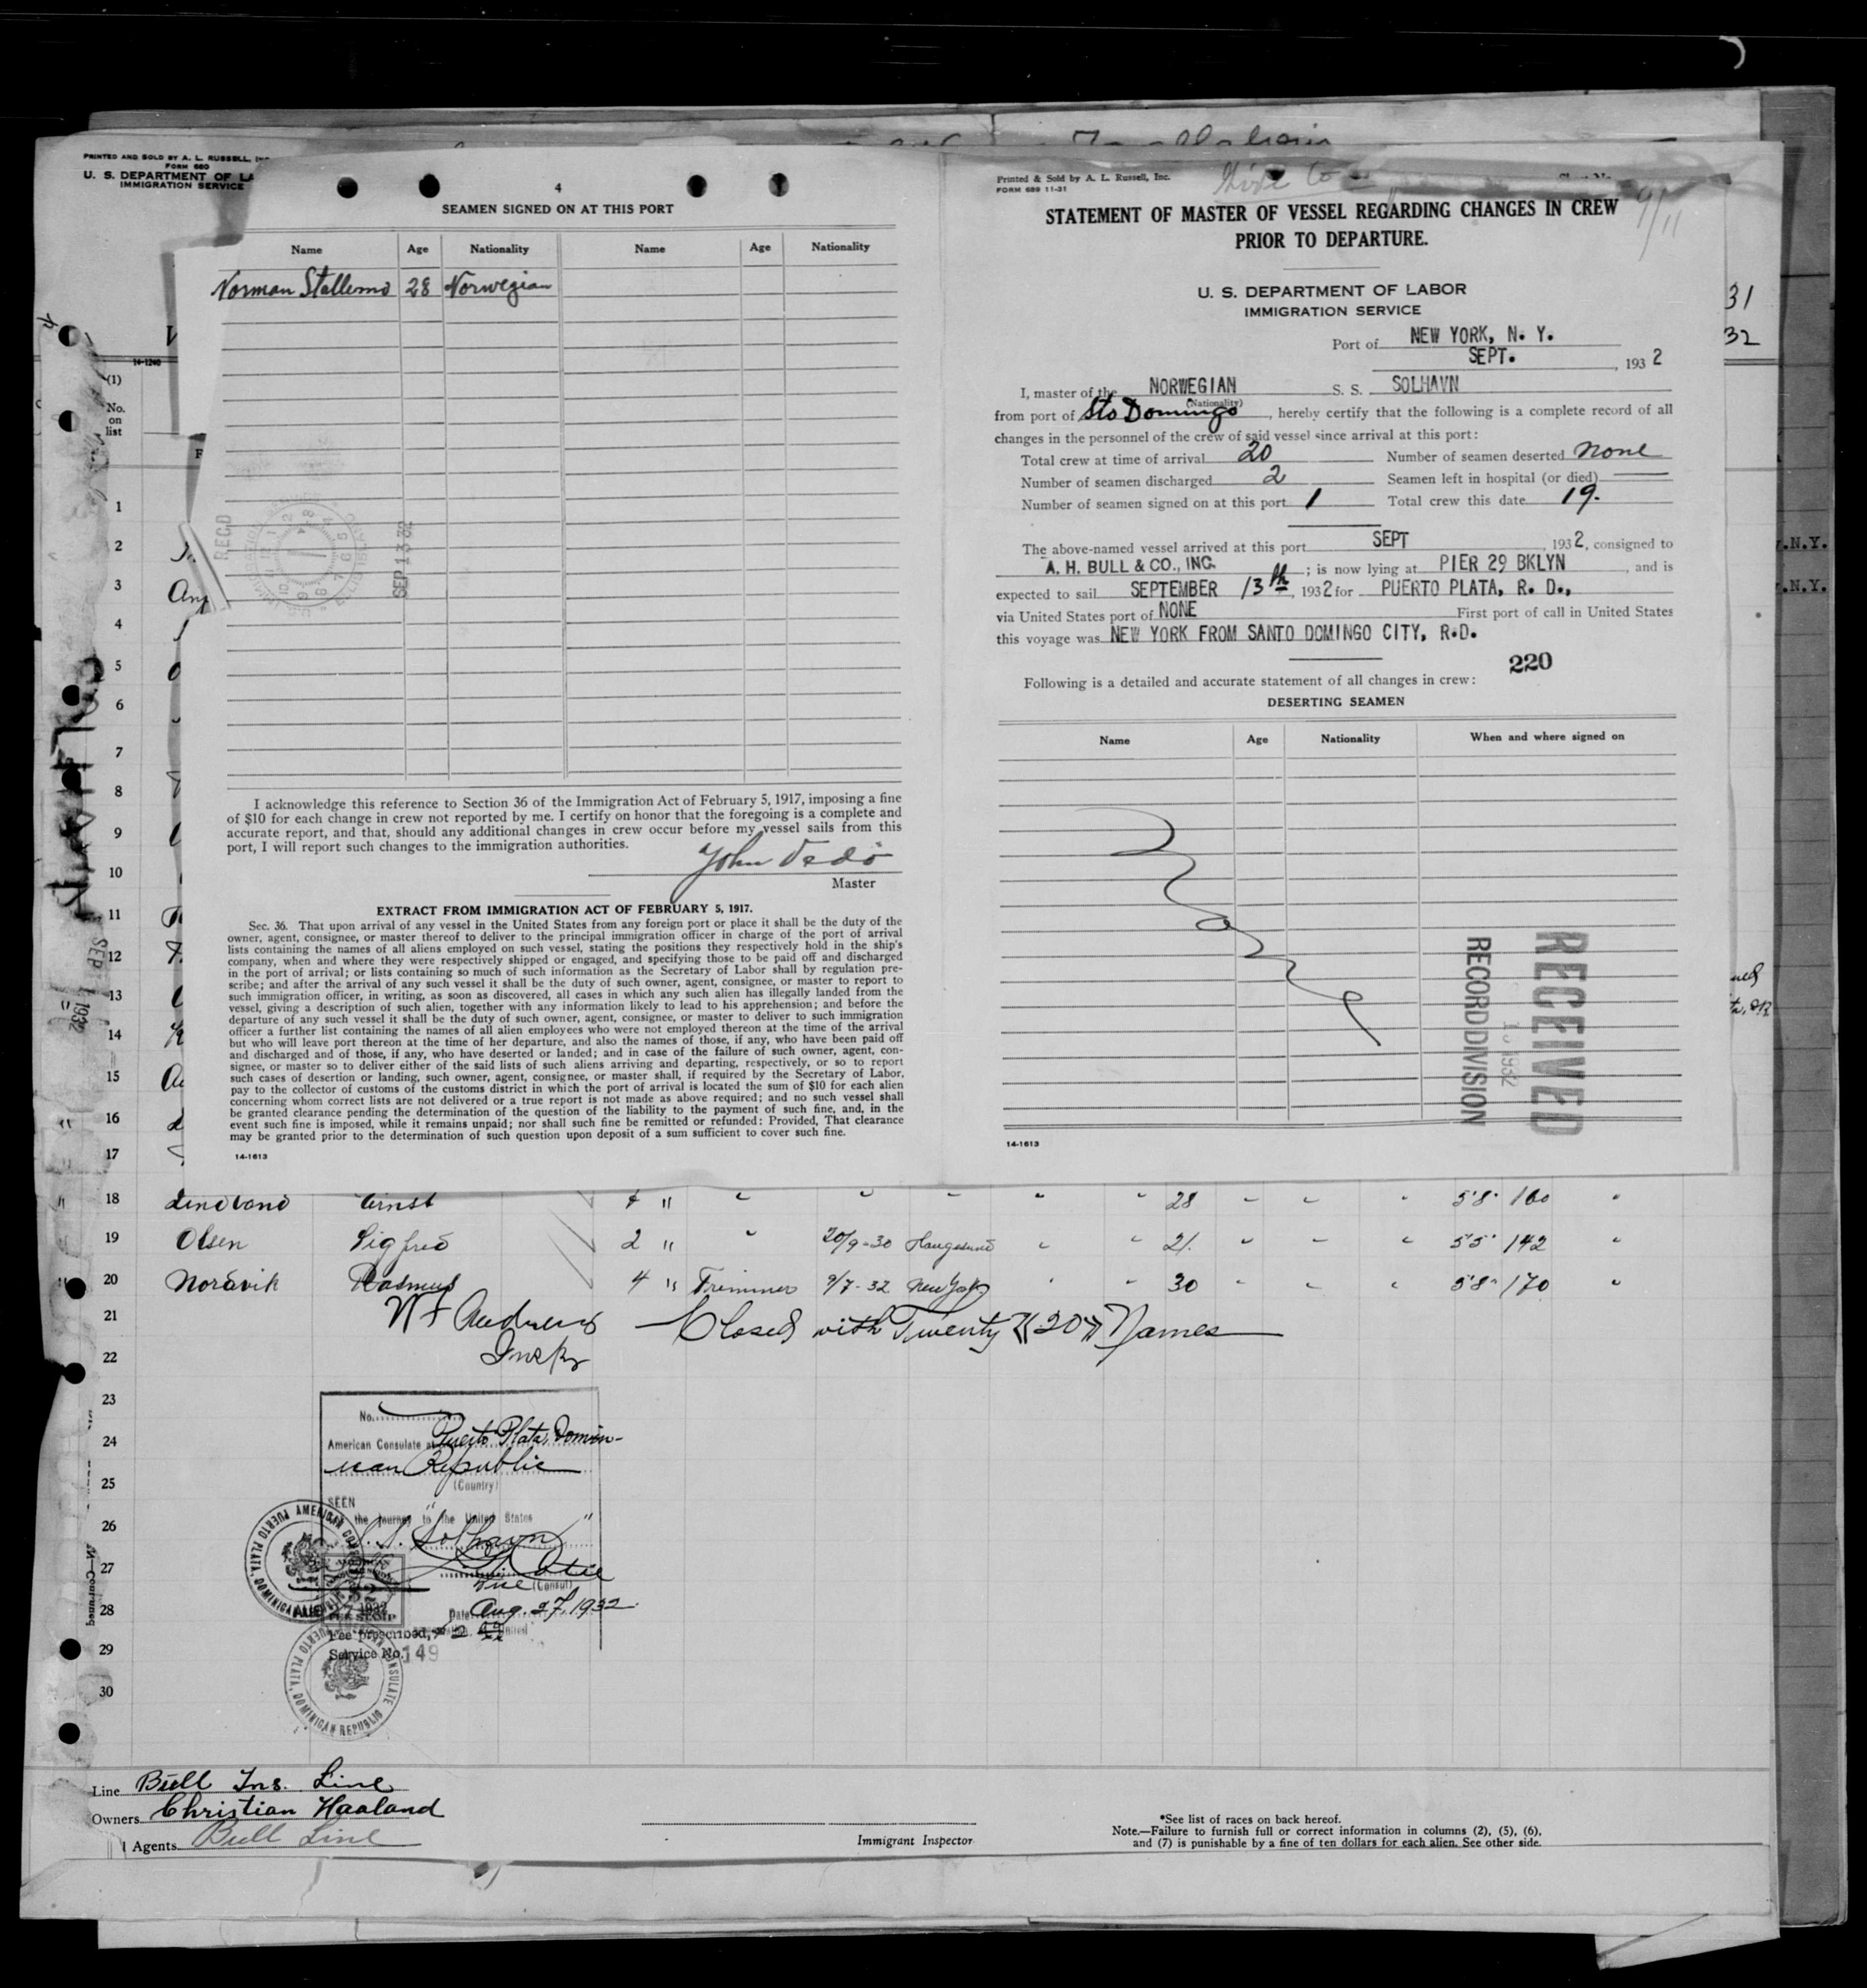 PRINTED AND SOLD BY A. L. RUSSELL,
FORM 680
U. S. DEPARTMENT OF LA
IMMIGRATION SERVICE
14-1240
(1)
No.
on
list
1
2
3
4
5
6
7
8
9
10
11
12
13
14
15
16
17
4
SEAMEN SIGNED ON AT THIS PORT
Name Age Nationality Name Age Nationality
Norman Stallemo 28 Norwegian
REC'D
SEP 13 32
I acknowledge this reference to Section 36 of the Immigration Act of February 5, 1917, imposing a fine
of $10 for each change in crew not reported by me. I certify on honor that the foregoing is a complete and
accurate report, and that, should any additional changes in crew occur before my vessel sails from this
port, I will report such changes to the immigration authorities.
John Vedö
Master
EXTRACT FROM IMMIGRATION ACT OF FEBRUARY 5, 1917.
Sec. 36. That upon arrival of any vessel in the United States from any foreign port or place it shall be the duty of the
owner, agent, consignee, or master thereof to deliver to the principal immigration officer in charge of the port of arrival
lists containing the names of all aliens employed on such vessel, stating the positions they respectively hold in the ship's
company, when and where they were respectively shipped or engaged, and specifying those to be paid off and discharged
in the port of arrival; or lists containing so much of such information as the Secretary of Labor shall by regulation pre-
scribe; and after the arrival of any such vessel it shall be the duty of such owner, agent, consignee, or master to report to
such immigration officer, in writing, as soon as discovered, all cases in which any such alien has illegally landed from the
vessel, giving a description of such alien, together with any information likely to lead to his apprehension; and before the
departure of any such vessel it shall be the duty of such owner, agent, consignee, or master to deliver to such immigration
officer a further list containing the names of all alien employees who were not employed thereon at the time of the arrival
but who will leave port thereon at the time of her departure, and also the names of those, if any, who have been paid off
and discharged and of those, if any, who have deserted or landed; and in case of the failure of such owner, agent, con-
signee, or master so to deliver either of the said lists of such aliens arriving and departing, respectively, or so to report
such cases of desertion or landing, such owner, agent, consignee, or master shall, if required by the Secretary of Labor,
pay to the collector of customs of the customs district in which the port of arrival is located the sum of $10 for each alien
concerning whom correct lists are not delivered or a true report is not made as above required; and no such vessel shall
be granted clearance pending the determination of the question of the liability to the payment of such fine, and, in the
event such fine is imposed, while it remains unpaid; nor shall such fine be remitted or refunded: Provided, That clearance
may be granted prior to the determination of such question upon deposit of a sum sufficient to cover such fine.
14-1613
Printed & Sold by A. L. Russell, Inc.
FORM 689 11-31
9/11
STATEMENT OF MASTER OF VESSEL REGARDING CHANGES IN CREW
PRIOR TO DEPARTURE.
U. S. DEPARTMENT OF LABOR
IMMIGRATION SERVICE
Port of NEW YORK, N. Y.
SEPT. , 1932
I, master of the NORWEGIAN S. S. SOLHAVN
(Nationality)
from port of Sto Domingo, hereby certify that the following is a complete record of all
changes in the personnel of the crew of said vessel since arrival at this port:
Total crew at time of arrival 20 Number of seamen deserted none
Number of seamen discharged 2 Seamen left in hospital (or died)
Number of seamen signed on at this port 1 Total crew this date 19.
The above-named vessel arrived at this port SEPT , 1932, consigned to
A. H. BULL & CO., INC. ; is now lying at PIER 29 BKLYN , and is
expected to sail SEPTEMBER 13th, 1932 for PUERTO PLATA, R. D.,
via United States port of NONE First port of call in United States
this voyage was NEW YORK FROM SANTO DOMINGO CITY, R.D.
220
Following is a detailed and accurate statement of all changes in crew:
DESERTING SEAMEN
Name Age Nationality When and where signed on
RECEIVED
1932
RECORD DIVISION
14-1613
31
32
.N.Y.
.N.Y.
SEP 1932
18 Lindland Ernst 4 " " " " " " 28 " " " 5'8" 160 "
19 Olsen Sigfred 2 " " 20/9-30 Haugesund " " 21. " " " 5'5" 142 "
20 Nordvik Rasmus 4 " Trimmer 9/7-32 New York " " 30 " " " 5'8" 170 "
21 W F Andrews Closed with Twenty (20) Names
22 Inspr
23
24
25
26
27
28
29
30
No.
American Consulate at Puerto Plata, Domin-
ican Republic
(Country)
SEEN
the journey to the United States
S.S. "Solhavn"
Vice (Consul)
Date Aug. 27, 1932.
Fee prescribed, $2
Service No. 149
AMERICAN CONSULATE PUERTO PLATA, DOMINICAN REPUBLIC
Line Bull Ins. Line
Owners Christian Haaland
Agents Bull Line
Immigrant Inspector
*See list of races on back hereof.
Note.—Failure to furnish full or correct information in columns (2), (5), (6),
and (7) is punishable by a fine of ten dollars for each alien. See other side.